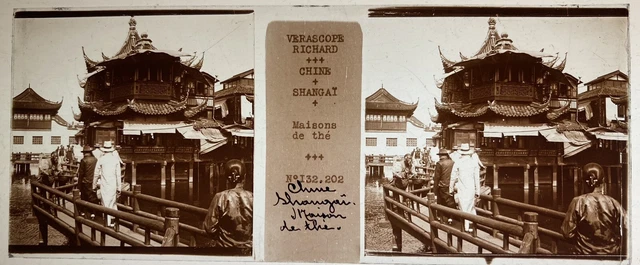 VERASCOPE
RICHARD
+++
CHINE
+
SHANGAÏ
+
Maisons
de thé
+++
N°I32,202
Chine
Shangaï.
Maison
de thé.